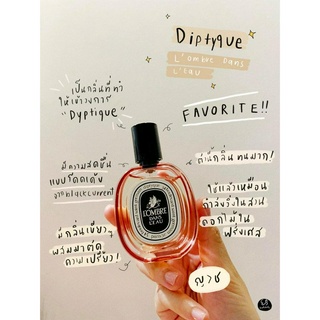 Diptyque
L'ombre Dans
L'eau
เป็นกลิ่นที่ทำ
ให้เข้าวงการ
"Dyptique"
FAVORITE!!
มีความสดชื่น
แบบโดดเด้ง
จากblackcurrent
ตัวนี้กลิ่นทนมาก!
ใช้แล้วเหมือน
กำลังวิ่งในสวน
ดอกไม้ใน
ฝรั่งเศส
L'OMBRE
DANS
L'EAU
มีกลิ่นเขียวๆ
ผสมมาตัด
ความเปรี้ยว!